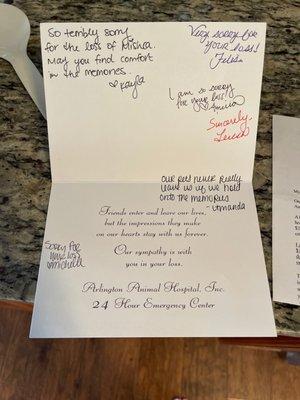 So terribly sorry
for the loss of Misha.
May you find comfort
in the memories.
♡Kayla
Very sorry for
your loss!
I am so sorry
for your loss!
Sincerely,
Our pets never really
leave us if we hold
onto the memories
- Amanda
Sorry for
your loss
Michelle
Friends enter and leave our lives,
but the impressions they make
on our hearts stay with us forever.
Our sympathy is with
you in your loss.
Arlington Animal Hospital, Inc.
24 Hour Emergency Center